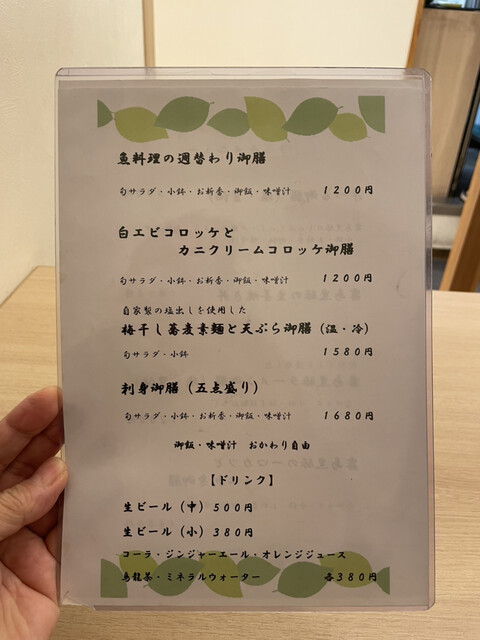 魚料理の週替わり御膳
旬サラダ・小鉢・お新香・御飯・味噌汁 1200円
白エビコロッケと
カニクリームコロッケ御膳
旬サラダ・小鉢・お新香・御飯・味噌汁 1200円
自家製の塩出しを使用した
梅干し蕎麦素麺と天ぷら御膳（温・冷）
旬サラダ・小鉢 1580円
刺身御膳（五点盛り）
旬サラダ・小鉢・お新香・御飯・味噌汁 1680円
御飯・味噌汁 おかわり自由
【ドリンク】
生ビール（中）500円
生ビール（小）380円
コーラ・ジンジャーエール・オレンジジュース
烏龍茶・ミネラルウォーター 各380円